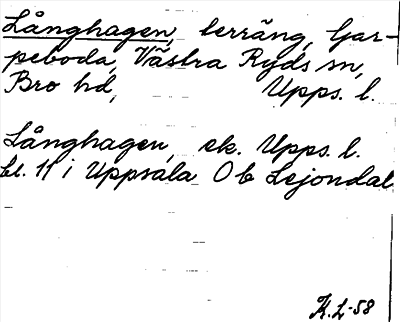 Långhagen, lerräng, Gar-
peboda, Västra Ryds sn,
Bro hd, Upps. l.
Långhagen, ek. Upps. l.
bl. 11 i Uppsala Ob Lejondal
K.L-58